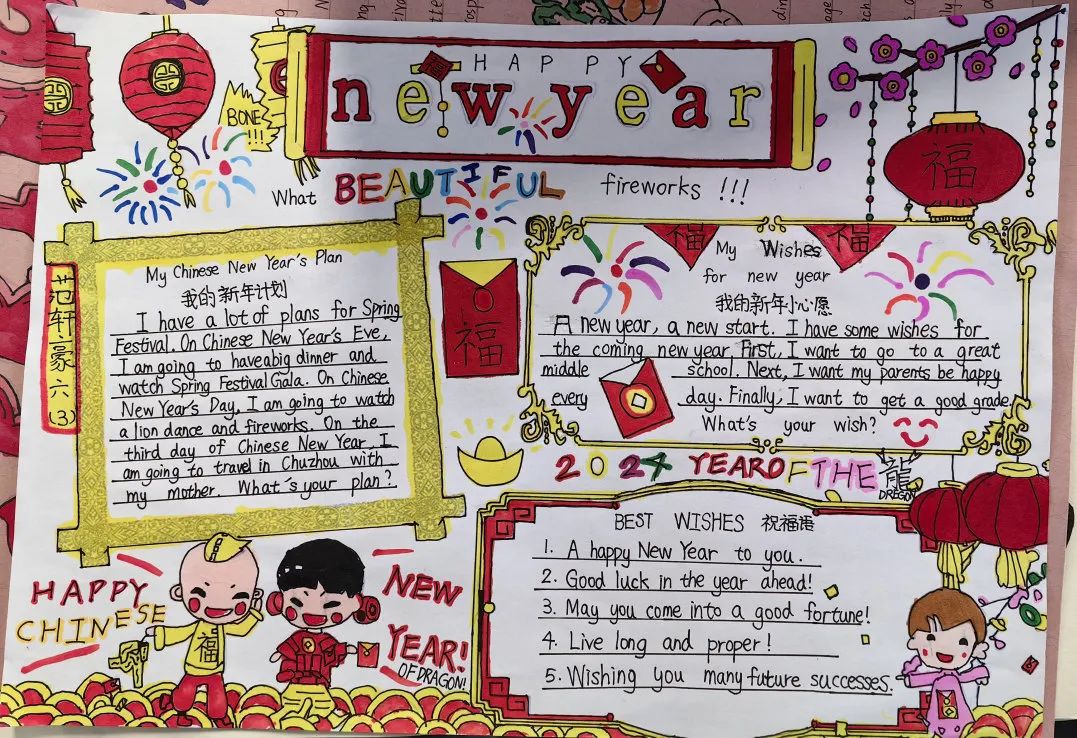 HAPPY
new year
BONE!!!
What BEAUTIFUL fireworks !!!
福
范轩豪六(3)
My Chinese New Year's Plan
我的新年计划
I have a lot of plans for Spring
Festival. On Chinese New Year's Eve,
I am going to haveabig dinner and
watch Spring Festival Gala. On Chinese
New Year's Day, I am going to watch
a lion dance and fireworks. On the
third day of Chinese New Year, I
am going to travel in Chuzhou with
my mother. What's your plan?
福
福
福
My Wishes
for new year
我的新年小心愿
A new year, a new start. I have some wishes for
the coming new year. First, I want to go to a great
middle school. Next, I want my parents be happy
every day. Finally, I want to get a good grade
What's your wish?
2024 YEAROFTHE 龍
DRAGON
BEST WISHES 祝福语
1. A happy New Year to you.
2. Good luck in the year ahead!
3. May you come into a good fortune!
4. Live long and proper!
5. Wishing you many future successes.
HAPPY
CHINESE
NEW
YEAR!
OF DRAGON!
福